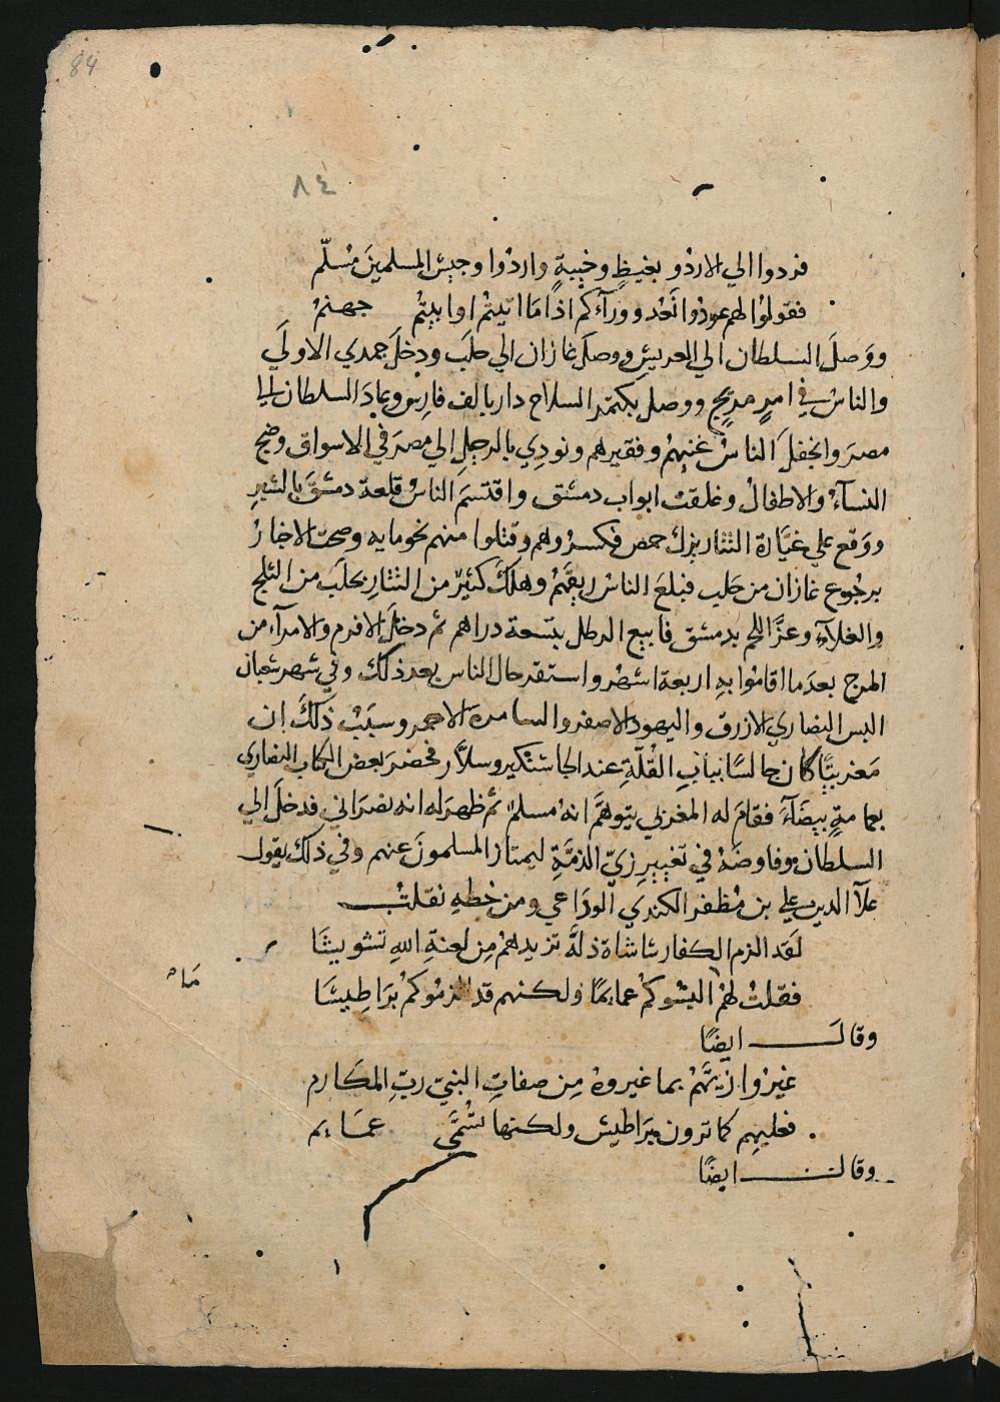 84
٨٤
فردوا الي الاردو بغيظٍ وخيبةٍ واردوا وجيش المسلمينَ مسُلّم
فقولوُا لهم عودُوا نَعُد ووَرآءَكم اذا مَا اتيتُم او ابيتُم جهنمُ
ووَصلَ السلطان الي العريش ووصل غازان الي حلب ودخلَ جمدي الاولَي
والناسُ في امرٍ مريجٍ ووصل بكتمر السلاح دار بالف فارِس وعادَ السلطان الي
مصرَ وانجفلَ الناسُ غنيهمُ وفقيرهم ونودِي بالرحِيل الي مصرَ في الاسواق وضج
النسآءُ والاطفالُ وغلقت ابواب دمشق واقتسمَ الناسُ قلعة دمشقَ بالشبرِ
ووَقع علي غيَّارة التتار يزك حمص فكسرُوهم وقتلوا منهم نحو مايه وصحت الاخبارُ
برجُوع غازان من حَلب فبلعَ الناسُ ريقهَمُ وهلكَ كثيرٌ من التتارِ بحلَب من الثلج
والغلآءِ وعزَّ اللحم بدمشق فابيع الرطل بتسعة دراهم ثم دخلَ الافرم والامرآء من
المرج بعدَ ما اقامُوا بهِ اربعة اشهرُ واستقر حال الناس بعد ذلكَ وفي شهر شعبان
البس النصاري الازرق واليهود الاصفر والسامرة الاحمر وسبَبُ ذلكَ ان
مَغربيًّا كان جالسًا ببابِ القُلَّةِ عند الجاشنكير وسلاَّر فحضرَ بعض الكتاب النصاري
بعمامةٍ بيضَآءَ فقامَ له المغربي يتوهَّمَ انه مسلمٌ ثم ظهرَ له انه نصرَاني فدخلَ الي
السلطان وفاوضَهُ في تغييرِ زيّ الذمَّةِ ليمتازَ المسلمونَ عنهم وفي ذلكَ يقول
علآ الدين علي بن مُظفر الكندي الودَاعي ومن خطهِ نقلتُ
لقَد الزم الكفار شاشاة ذلةَّ تزيدهمُ مِن لعنةِ اللهِ تشويشَا
فقلتُ لهمُ البسُوكمُ عمايمًا ولكنهم قد الزمُوكمُ برَاطِيشَا
وقال ايضًا
غيرُوا زيَّهُمُ بما غيروهُ مِن صفاتِ النبيّ ربّ المكَارم
فعليهِم كما ترون برَاطيش ولكنها تسُمَّي عمَايم
وقال ايضًا